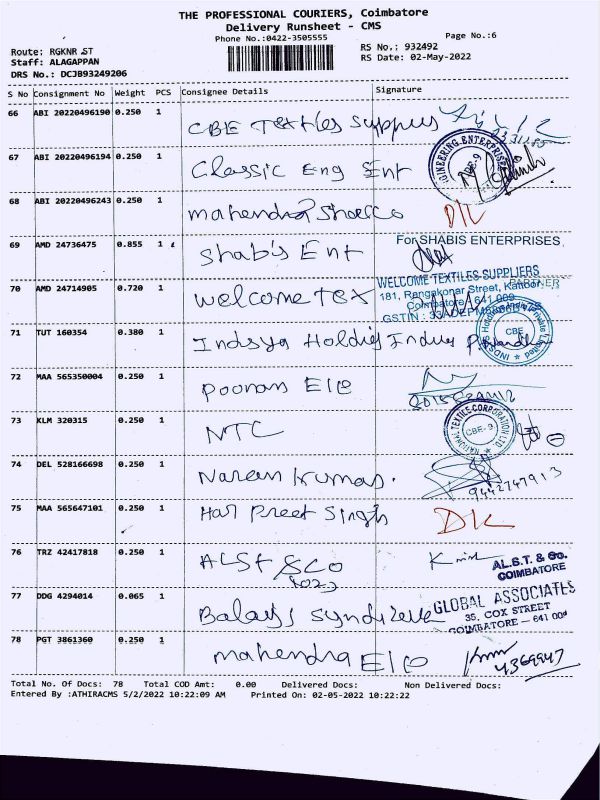 THE PROFESSIONAL COURIERS, Coimbatore
Delivery Runsheet - CMS
Phone No.:0422-3505555
Page No.:6
Route: RGKNR ST
RS No.: 932492
Staff: ALAGAPPAN
RS Date: 02-May-2022
DRS No.: DCJB93249206
S No Consignment No Weight PCS Consignee Details Signature
66 ABI 20220496190 0.250 1 CBE Textiles Suppus
67 ABI 20220496194 0.250 1 Classic Eng Ent
GINEERING ENTERPRISES
CBE-9
68 ABI 20220496243 0.250 1 mahendra D/L
69 AMD 24736475 0.855 1 Shabis Ent
For SHABIS ENTERPRISES,
PARTNER
70 AMD 24714905 0.720 1 welcome Tex
WELCOME TEXTILES SUPPLIERS
181, Rangakonar Street, Kattoor
Coimbatore - 641 009
GSTIN :
71 TUT 160354 0.380 1 Indsya Holdig Indus
CBE
72 MAA 565350004 0.250 1 poonam Ele
73 KLM 320315 0.250 1 NTC
NATIONAL TEXTILE CORPORATION LTD
CBE-9
74 DEL 528166698 0.250 1 Naren kumar.
9442747913
75 MAA 565647101 0.250 1 Har Preet Singh DL
76 TRZ 42417818 0.250 1 ALST &CO
AL.S.T. & Co.
COIMBATORE
77 DDG 4294014 0.065 1 Balays syndicate
GLOBAL ASSOCIATES
35, COX STREET
COIMBATORE - 641 001
78 PGT 3861360 0.250 1 mahendra Ele
Total No. Of Docs: 78 Total COD Amt: 0.00 Delivered Docs: Non Delivered Docs:
Entered By :ATHIRACMS 5/2/2022 10:22:09 AM Printed On: 02-05-2022 10:22:22